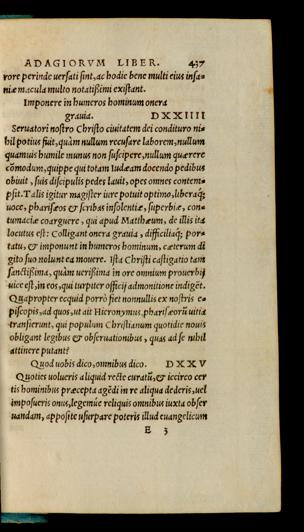 ADAGIORVM LIBER. 437
rore perinde uersati sint, ac hodie bene multi eius insa-
niæ macula multo notatißimi existant.
Imponere in humeros hominum onera
grauia. DXXIIII
Seruatori nostro Christo ciuitatem dei condituro ni-
hil potius fuit, quàm nullum recusare laborem, nullum
quamuis humile munus non suscipere, nullum quærere
cõmodum, quippe qui totam Iudæam docendo pedibus
obiuit, suis discipulis pedes lauit, opes omnes contem-
psit. Talis igitur magister iure potuit optimo, liberaq;
uoce, pharisæos & scribas insolentiæ, superbiæ, con-
tumaciæ coarguere, qui apud Matthæum, de illis ita
locutus est: Colligant onera grauia, difficiliaq; por-
tatu, & imponunt in humeros hominum, cæterum di
gito suo nolunt ea mouere. Ista Christi castigatio tam
sanctißima, quàm uerißima in ore omnium prouerbij
uice est, in eos, qui turpiter officij admonitione indigẽt.
Quapropter ecquid porrò fiet nonnullis ex nostris e-
piscopis, ad quos, ut ait Hieronymus, pharisæorũ uitia
transierunt, qui populum Christianum quotidie nouis
obligant legibus & obseruationibus, quas ad se nihil
attinere putant?
Quod uobis dico, omnibus dico. DXXV
Quoties uolueris aliquid recte curatũ, & iccirco cer
tis hominibus præcepta agẽdi in re aliqua dederis, uel
imposueris onus, legemúe reliquis omnibus iuxta obser
uandam, apposite usurpare poteris illud euangelicum
E 3